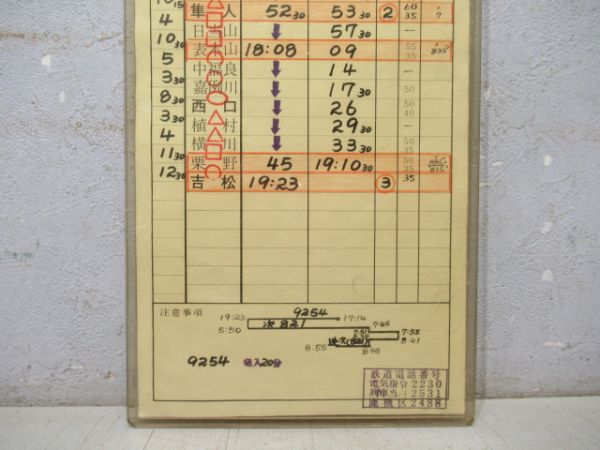 隼人 52 30 53 30 ② 60 35
4 日当山 ↓ 57 30 —
10 30 表木山 18:08 09 55 35
5 中福良 ↓ 14 —
3 30 嘉例川 ↓ 17 30 50
8 30 西口 ↓ 26 50 40
3 30 植村 ↓ 29 30 —
4 横川 ↓ 33 30 50 35
11 30 栗野 45 19:10 30 50 35
12 30 吉松 19:23 ③ 35
注意事項
9254
19:23 17:14
次 821 7:45
5:50
7:55
8:41
8:55 8:40
9254 20分
鉄道電話番号
電気指令2230
列車当 2531
鹿機区2488